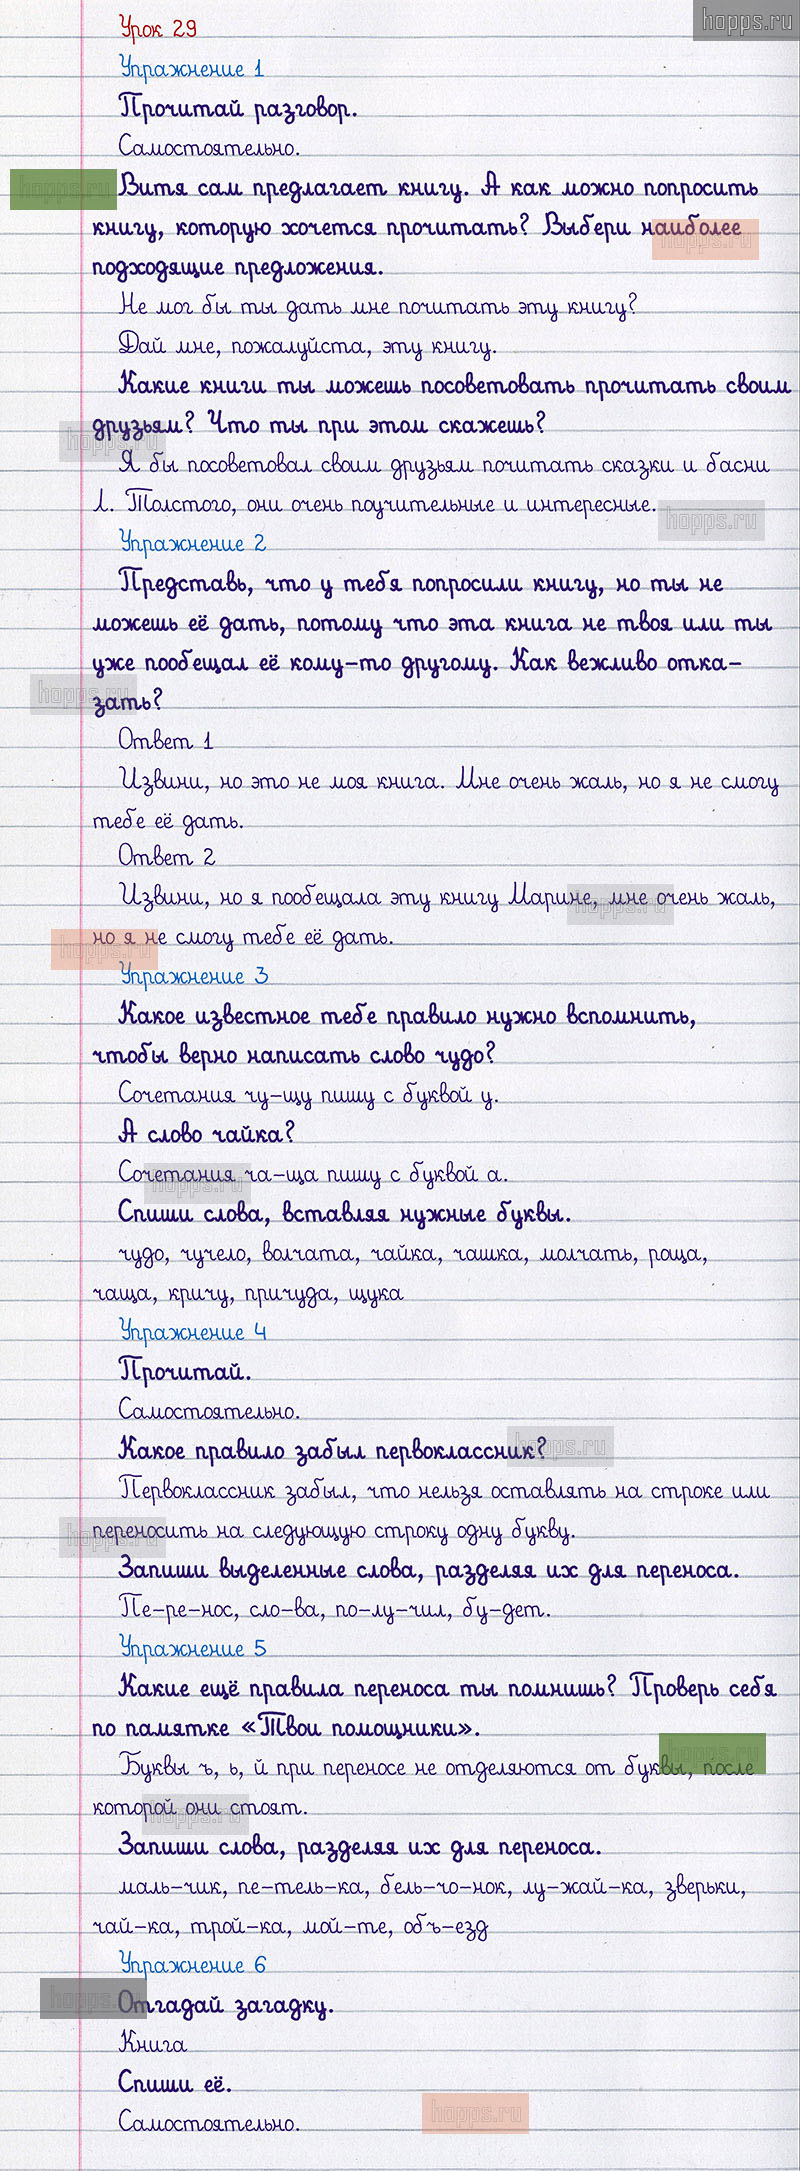 hopps.ru
Урок 29
Упражнение 1
Прочитай разговор.
Самостоятельно.
hopps.ru
Витя сам предлагает книгу. А как можно попросить
книгу, которую хочется прочитать? Выбери наиболее
hopps.ru
подходящие предложения.
Не мог бы ты дать мне почитать эту книгу?
Дай мне, пожалуйста, эту книгу.
Какие книги ты можешь посоветовать прочитать своим
друзьям? Что ты при этом скажешь?
hopps.ru
Я бы посоветовал своим друзьям почитать сказки и басни
Л. Толстого, они очень поучительные и интересные.
hopps.ru
Упражнение 2
Представь, что у тебя попросили книгу, но ты не
можешь её дать, потому что эта книга не твоя или ты
уже пообещал её кому-то другому. Как вежливо отка-
hopps.ru
зать?
Ответ 1
Извини, но это не моя книга. Мне очень жаль, но я не смогу
тебе её дать.
Ответ 2
Извини, но я пообещала эту книгу Марине, мне очень жаль,
hopps.ru
но я не смогу тебе её дать.
hopps.ru
Упражнение 3
Какое известное тебе правило нужно вспомнить,
чтобы верно написать слово чудо?
Сочетания чу-щу пишу с буквой у.
А слово чайка?
Сочетания ча-ща пишу с буквой а.
hopps.ru
Спиши слова, вставляя нужные буквы.
чудо, чучело, волчата, чайка, чашка, молчать, роща,
чаща, кричу, причуда, щука
Упражнение 4
Прочитай.
Самостоятельно.
Какое правило забыл первоклассник?
hopps.ru
Первоклассник забыл, что нельзя оставлять на строке или
переносить на следующую строку одну букву.
hopps.ru
Запиши выделенные слова, разделяя их для переноса.
Пе-ре-нос, сло-ва, по-лу-чил, бу-дет.
Упражнение 5
Какие ещё правила переноса ты помнишь? Проверь себя
по памятке «Твои помощники».
Буквы ъ, ь, й при переносе не отделяются от буквы, после
hopps.ru
которой они стоят.
hopps.ru
Запиши слова, разделяя их для переноса.
маль-чик, пе-тель-ка, бель-чо-нок, лу-жай-ка, зверьки,
чай-ка, трой-ка, мой-те, объ-езд
Упражнение 6
Отгадай загадку.
hopps.ru
Книга
Спиши её.
hopps.ru
Самостоятельно.